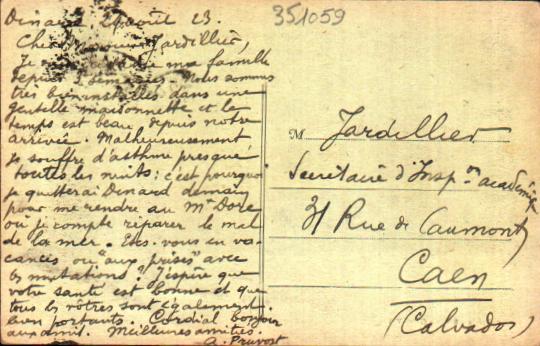 351059
Dinard, août 23.
Cher Monsieur Jardillier,
Je ma famille
depuis 3 semaines. Nous sommes
très bien installés dans une
gentille maisonnette et le
temps est beau depuis notre
arrivée. Malheureusement
je souffre d'asthme presque
toutes les nuits : c'est pourquoi
je quitterai Dinard demain
pour me rendre au Mt Dore
où je compte réparer le mal
de la mer. Etes-vous en va-
cances ou "aux prises" avec
les mutations? J'espère que
votre santé est bonne et que
tous les vôtres sont également
bien portants. Cordial bonjour
aux amis. Meilleures amitiés.
A. Pruvost
M. Jardillier
Secrétaire d'Insp.on académique
31 Rue de Caumont
Caen
(Calvados)